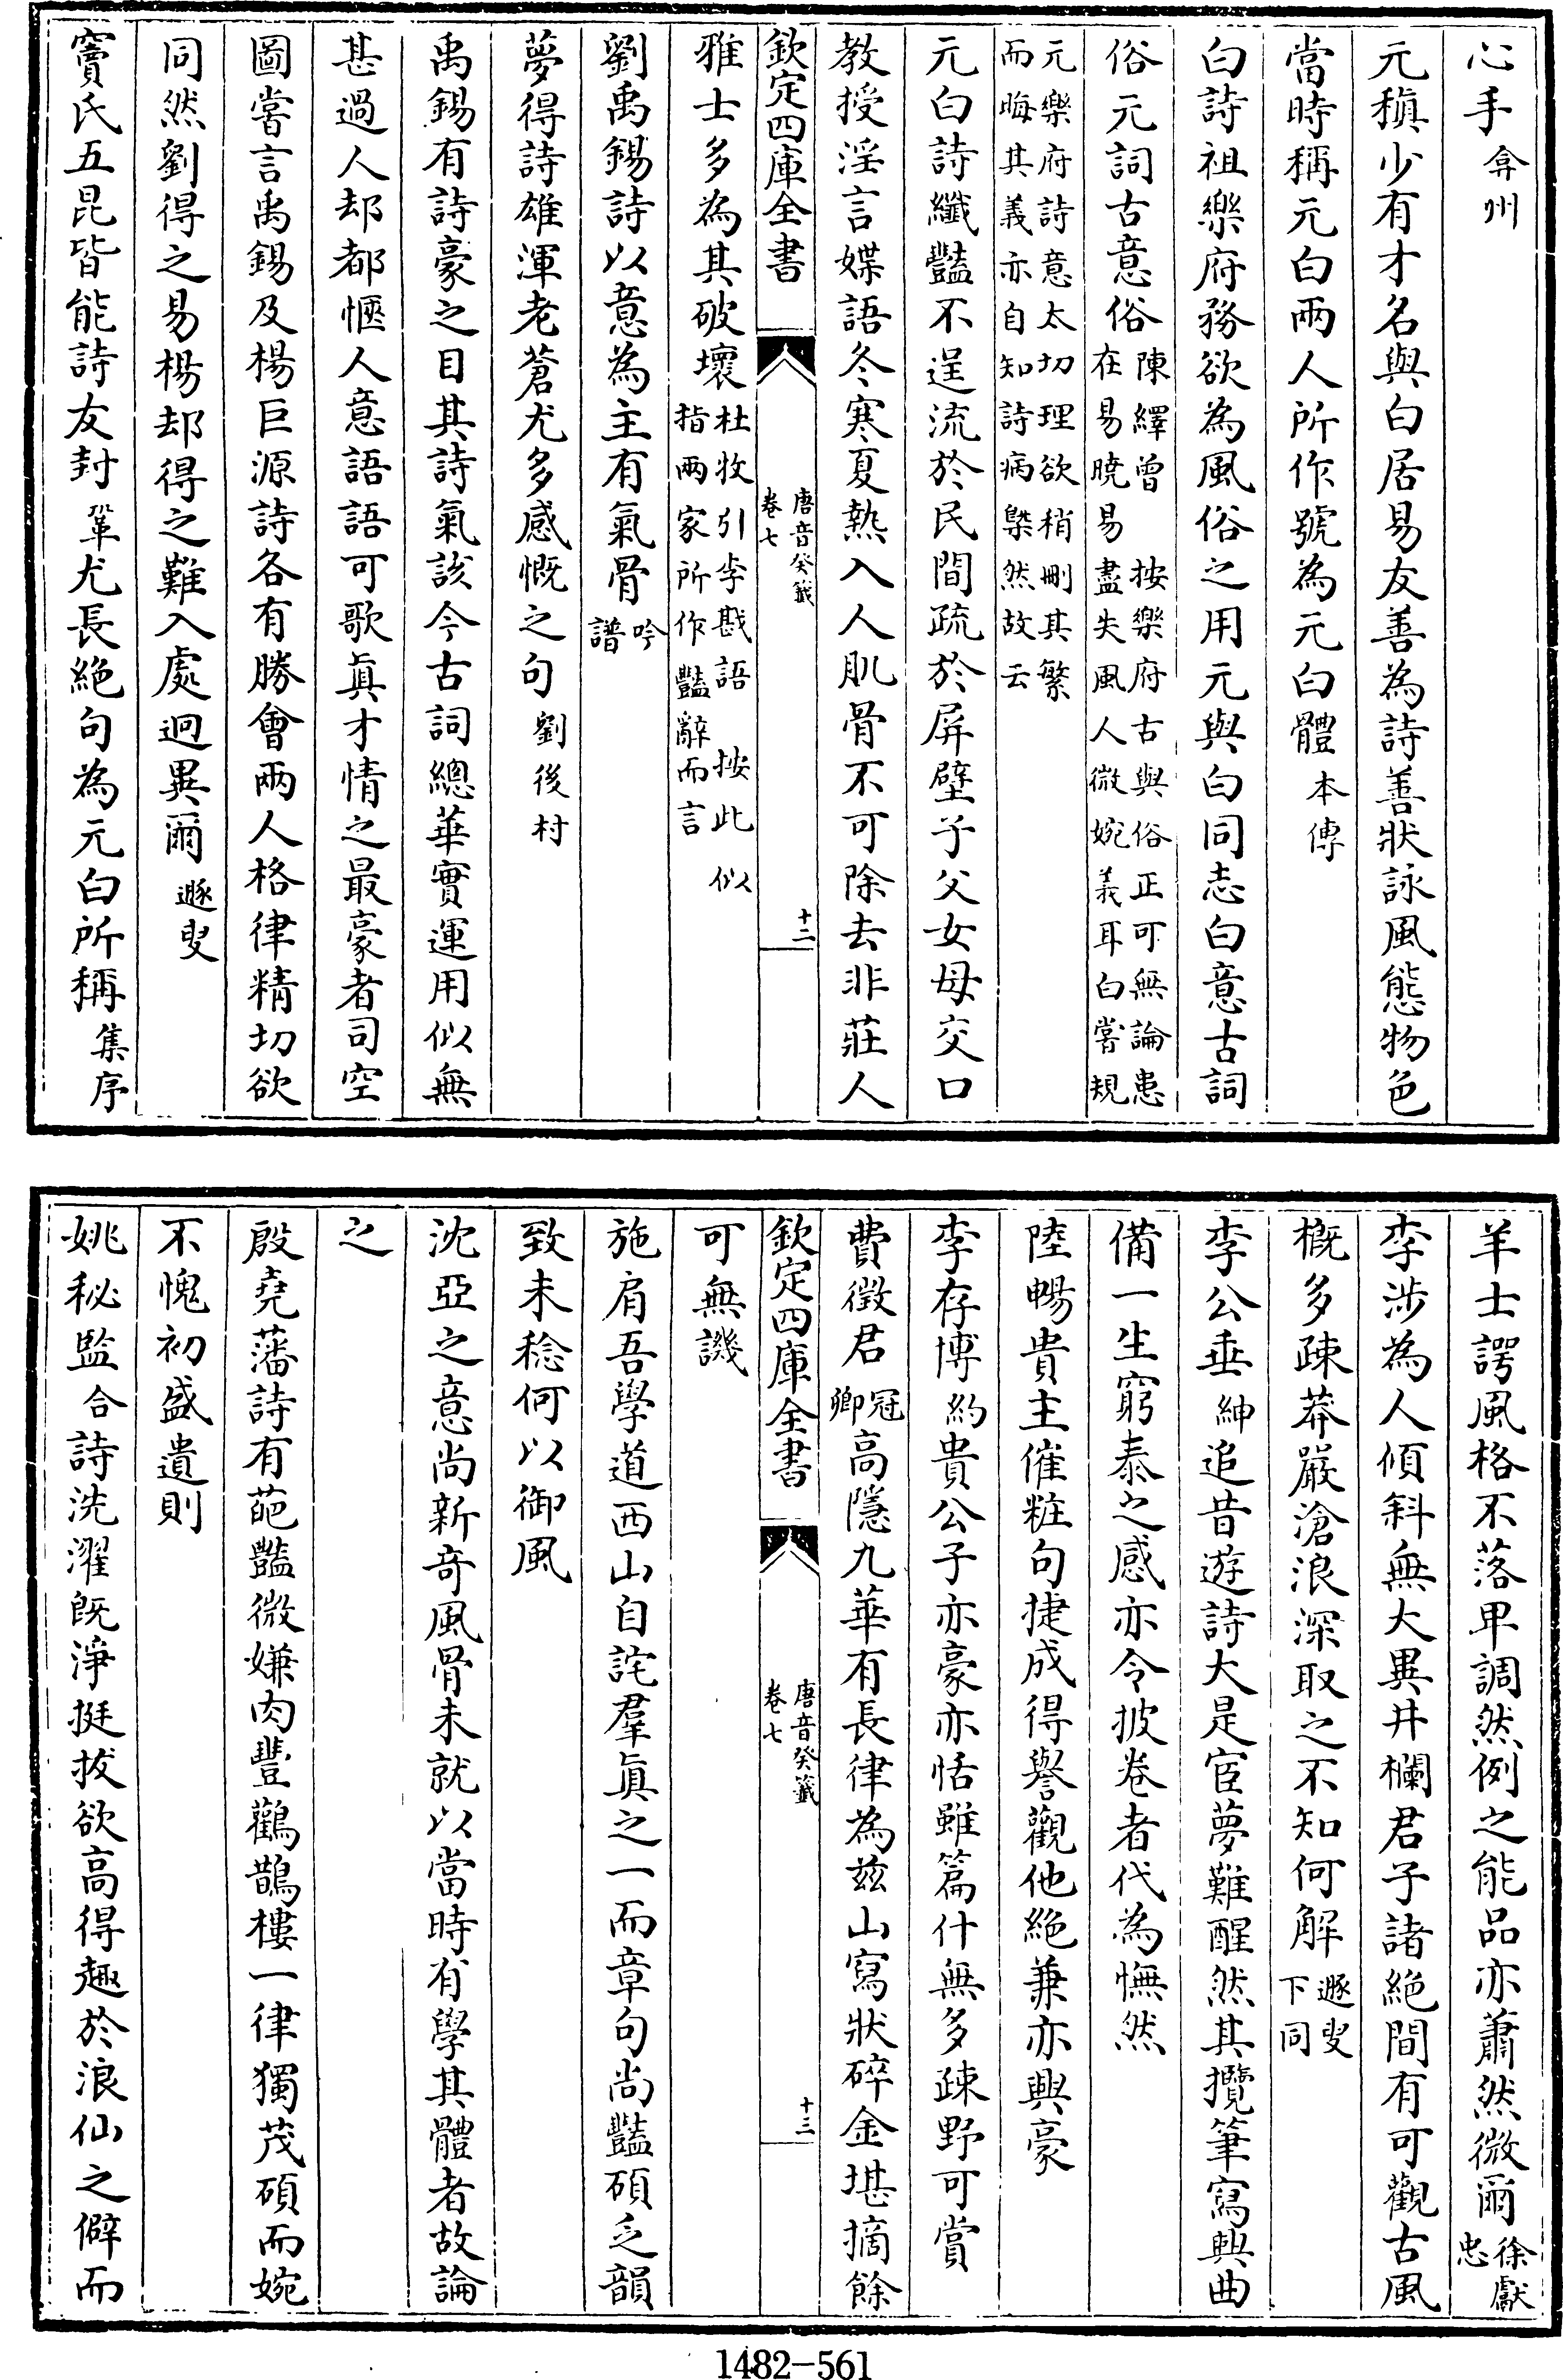 心手弇州
元稹少有才名與白居易友善為詩善狀詠風態物色
當時稱元白兩人所作號為元白體本傳
白詩祖樂府務欲為風俗之用元與白同志白意古詞
俗元詞古意俗陳繹曾 按樂府古與俗正可無論患
在易曉易盡失風人微婉義耳白嘗規
元樂府詩意太切理欲稍刪其繁
而晦其義亦自知詩病㮣然故云
元白詩纖豔不逞流於民間疏於屏壁子父女母交口
教授淫言媟語冬寒夏熱入人肌骨不可除去非莊人
欽定四庫全書
唐音癸籤
卷七
十二
雅士多為其破壞杜牧引李戡語 按此似
指兩家所作豔辭而言
劉禹錫詩以意為主有氣骨吟
譜
夢得詩雄渾老蒼尤多感慨之句劉後村
禹錫有詩豪之目其詩氣該今古詞總華實運用似無
甚過人却都愜人意語語可歌眞才情之最豪者司空
圖嘗言禹錫及楊巨源詩各有勝會兩人格律精切欲
同然劉得之易楊却得之難入處迥異爾遯叟
竇氏五昆皆能詩友封鞏尤長絕句為元白所稱集序
羊士諤風格不落卑調然例之能品亦蕭然微爾徐獻
忠
李涉為人傾斜無大異井欄君子諸絕間有可觀古風
概多疎莽嚴滄浪深取之不知何解遯叟
下同
李公垂紳追昔遊詩大是宦夢難醒然其攬筆寫興曲
備一生窮泰之感亦令披卷者代為憮然
陸暢貴主催粧句捷成得譽觀他絕兼亦興豪
李存博約貴公子亦豪亦恬雖篇什無多疎野可賞
費徵君冠
卿高隱九華有長律為兹山寫狀碎金堪摘餘
欽定四庫全書
唐音癸籤
卷七
十三
可無譏
施肩吾學道西山自詫羣眞之一而章句尚豔碩乏韻
致未稔何以御風
沈亞之意尚新奇風骨未就以當時有學其體者故論
之
殷堯藩詩有葩豔微嫌肉豐鸛鵲樓一律獨茂碩而婉
不愧初盛遺則
姚秘監合詩洗濯旣淨挺拔欲高得趣於浪仙之僻而
1482-561